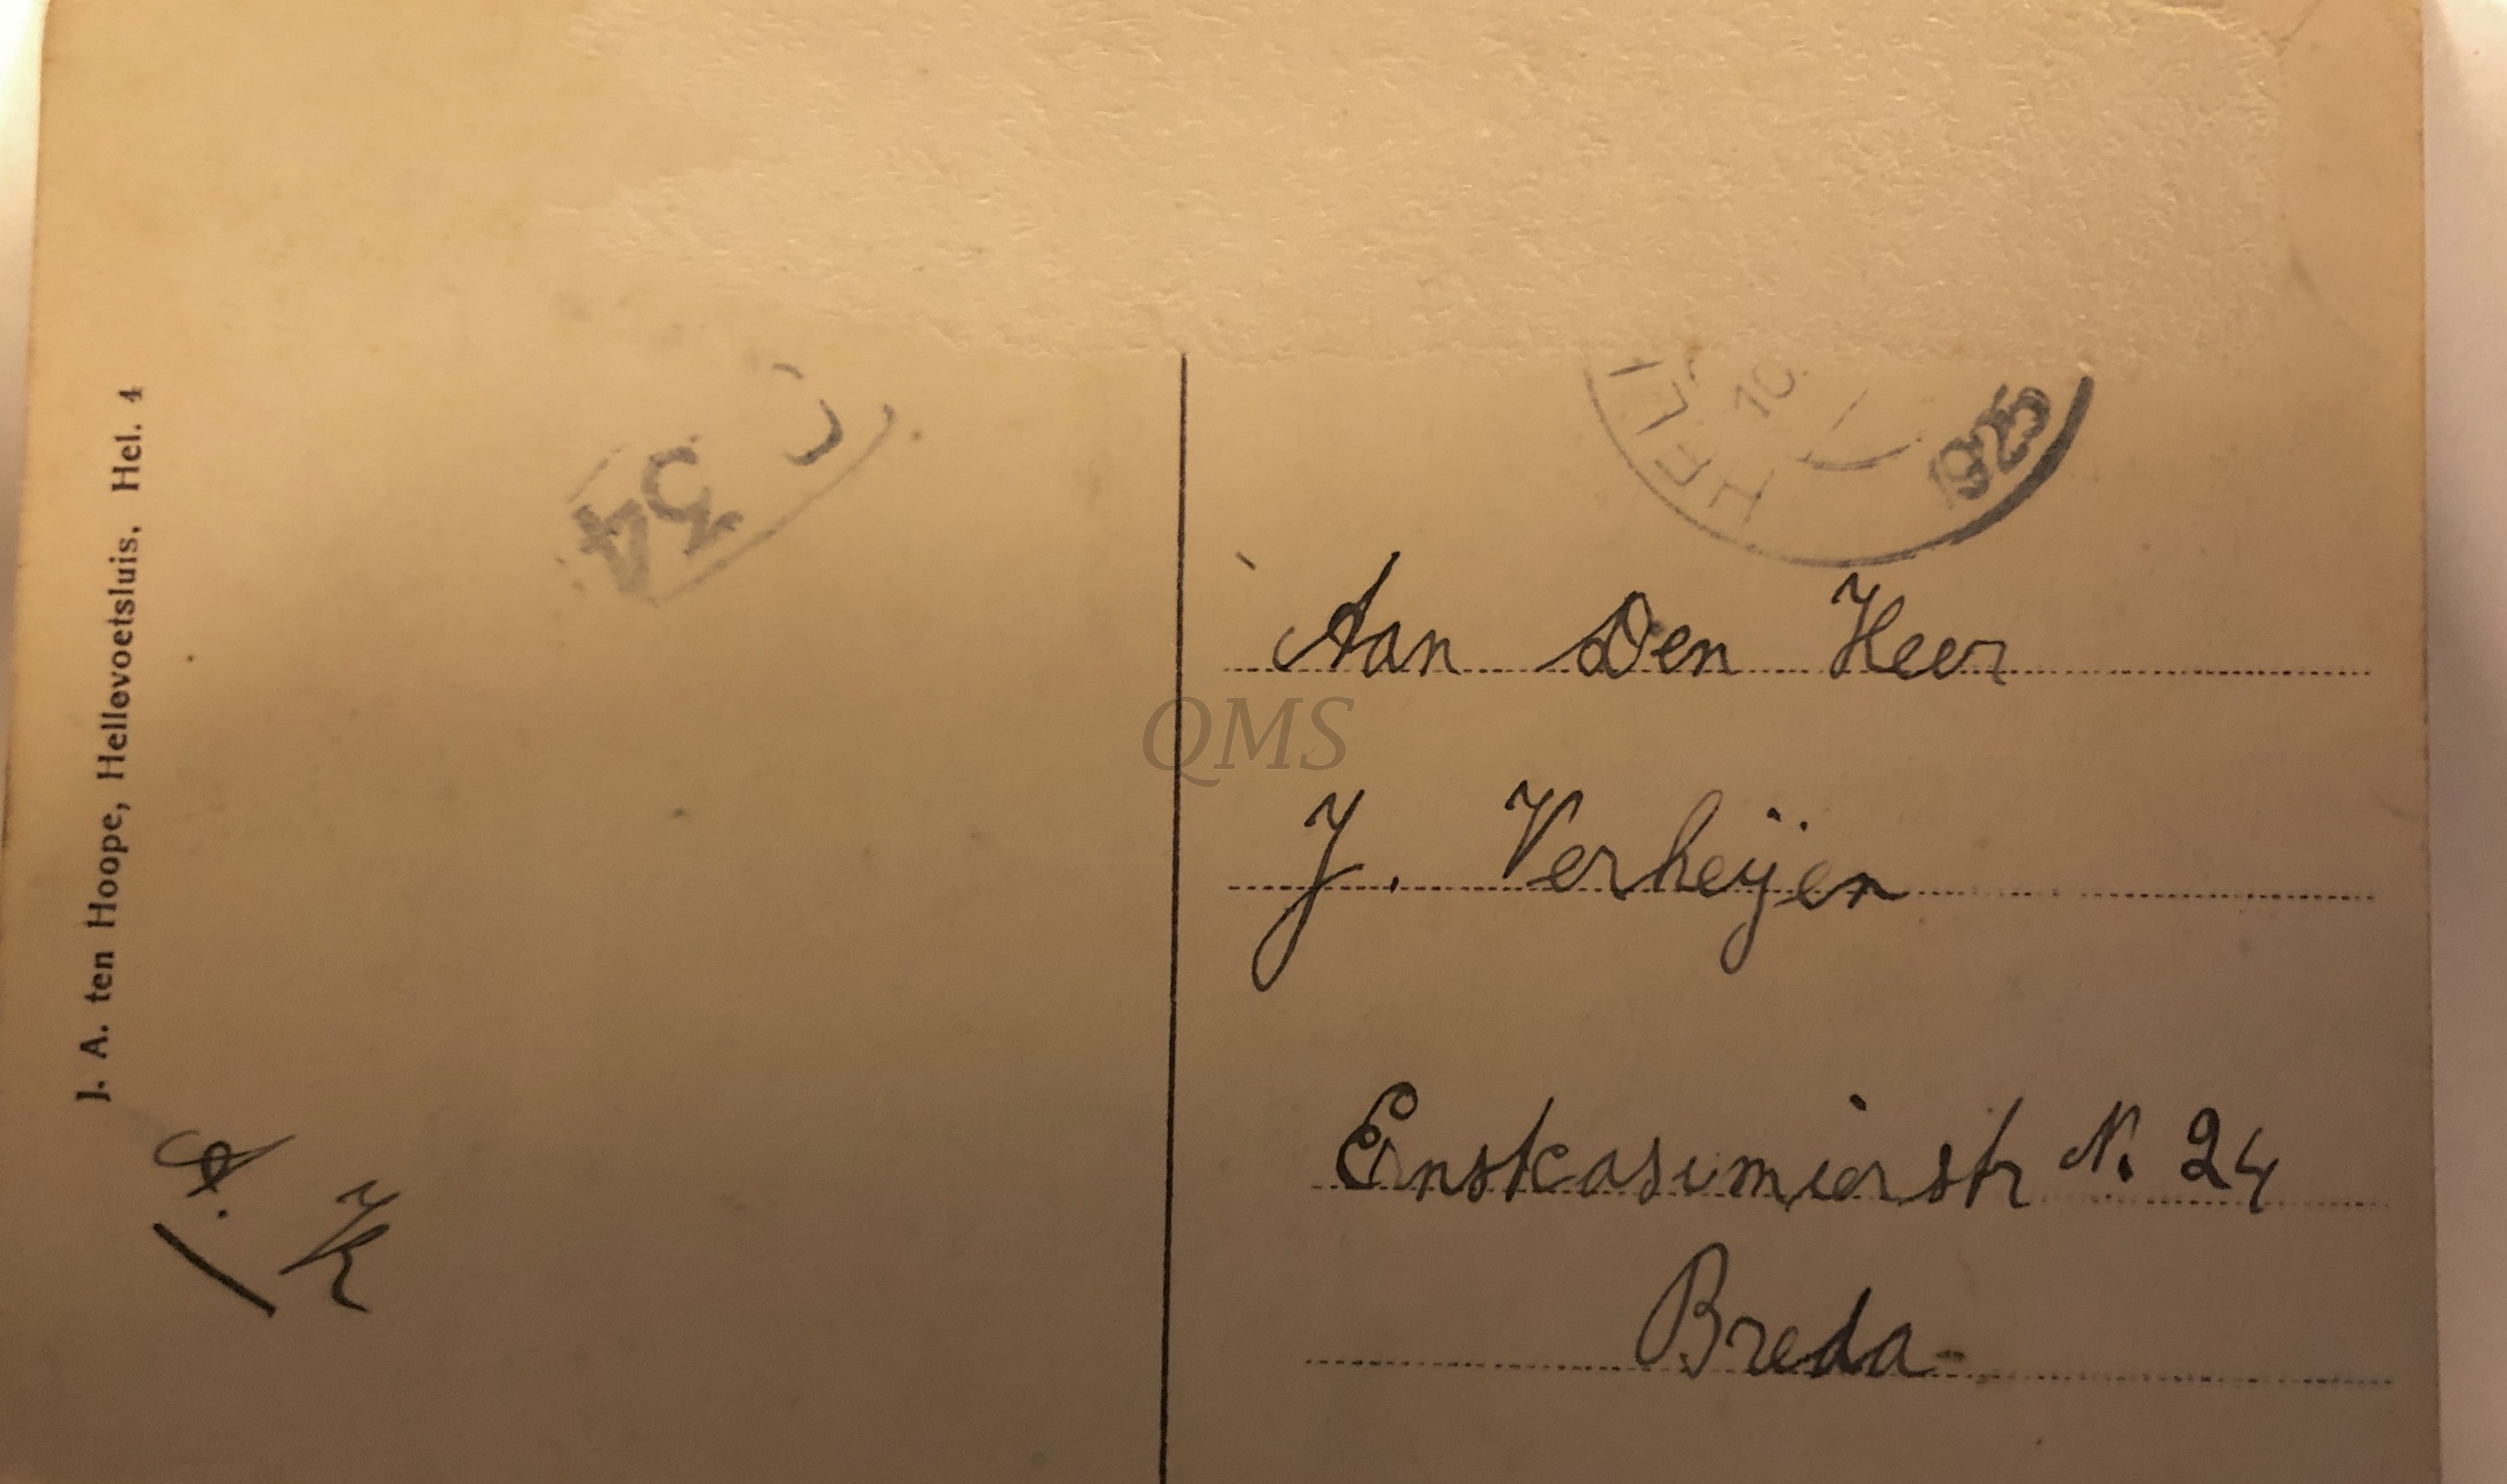 J. A. ten Hoope, Hellevoetsluis, Hel. 4
C
54
HELL
10
1925
Aan Den Heer
J. Verheijen
Ernstcasimierstr N. 24
Breda
QMS